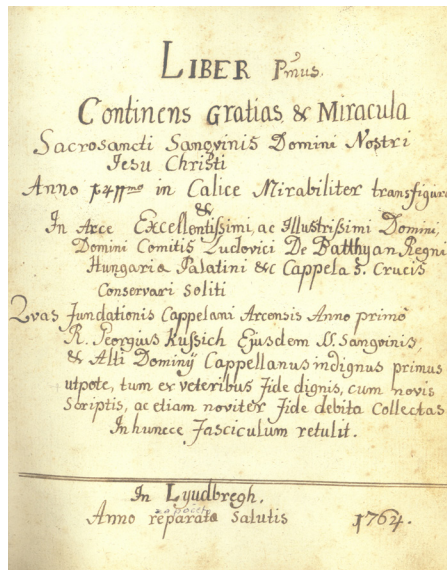 LIBER Pmus.
Continens Gratias, & Miracula
Sacrosancti Sangvinis Domini Nostri
Jesu Christi
Anno 1411mo in Calice Mirabiliter transfigur
&
In Arce Excellentissimi, ac Illustrissimi Domini,
Domini Comitis Ludovici De Batthyan Regni
Hungaria Palatini &c Cappela S. Crucis
Conservari Soliti
Qvas Fundationis Cappelani Arcensis Anno primo
R. Georgius Kussich Ejusdem SS. Sangvinis,
& Alti Dominij Cappellanus indignus primus
utpote, tum ex veteribus fide dignis, cum novis
Scriptis, ac etiam noviter fide debita Collectas
In huncce Fasciculum retulit.
In Lyudbregh.
Anno reparata Salutis 1764.